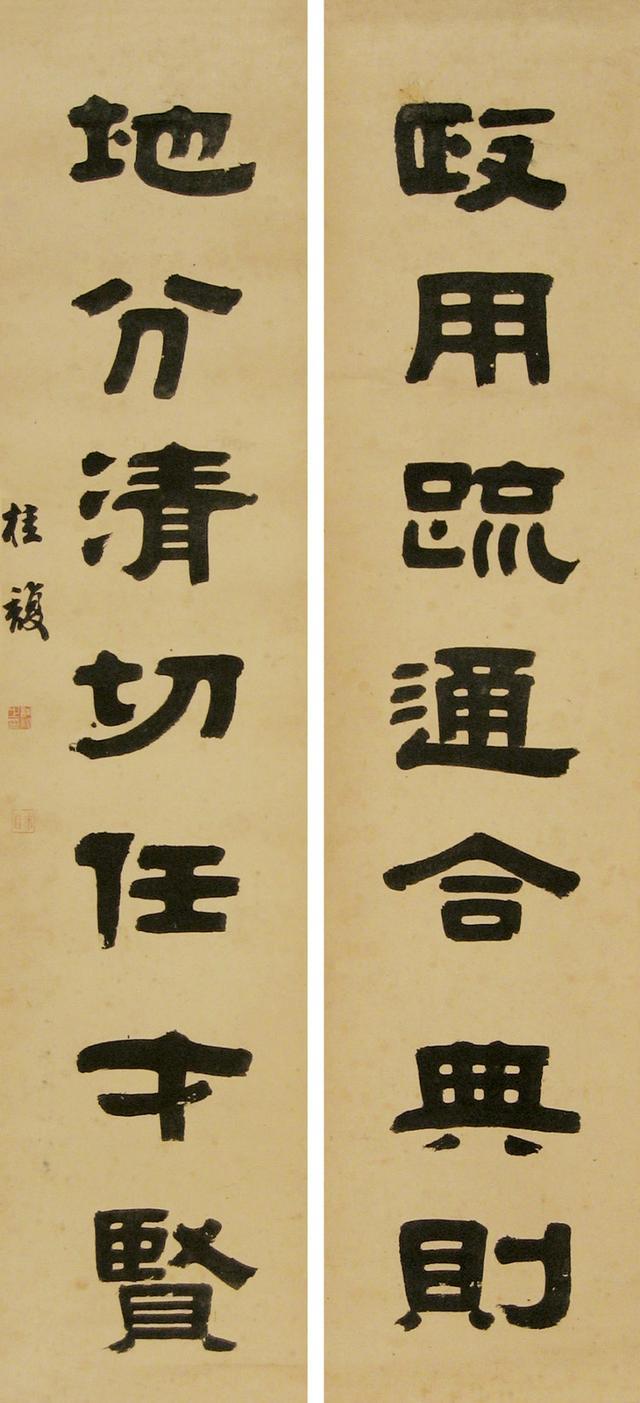 政用疏通合典則
地分清切任才賢
桂馥